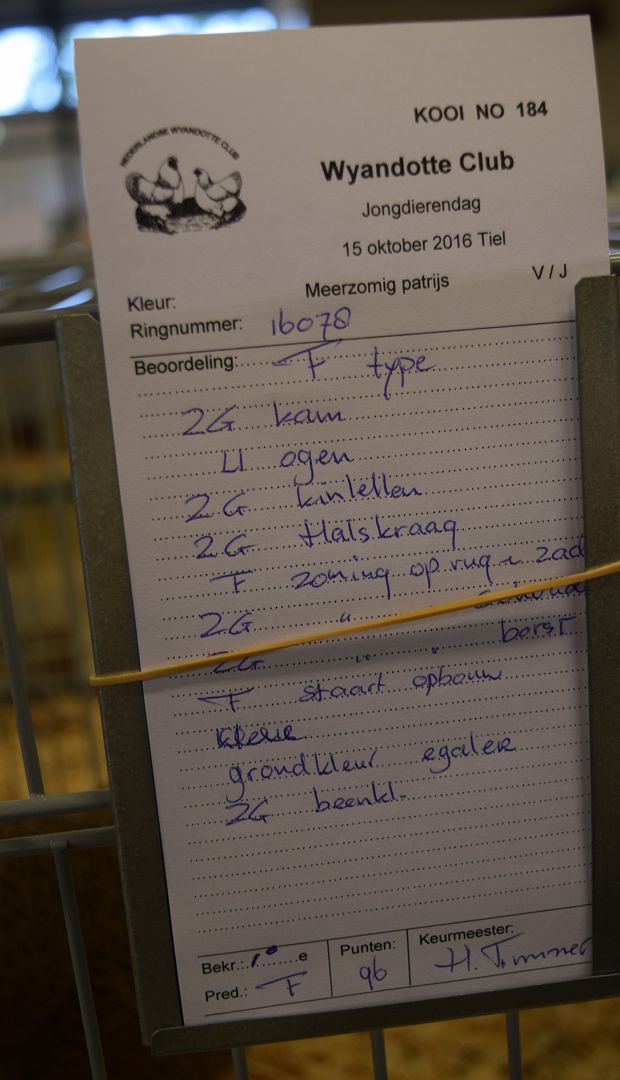 KOOI NO 184
NEDERLANDSE WYANDOTTE CLUB
Wyandotte Club
Jongdierendag
15 oktober 2016 Tiel
Kleur: Meerzomig patrijs V / J
Ringnummer: 16078
Beoordeling: F type
2G kam
U ogen
2G kinlellen
2G Halskraag
F zoming op rug zad
2G "
2G " " borst
F staart opbouw
grondkleur egaler
2G beenkl-
Bekr.: 1e e
Pred.: F
Punten:
96
Keurmeester:
H. Timmer